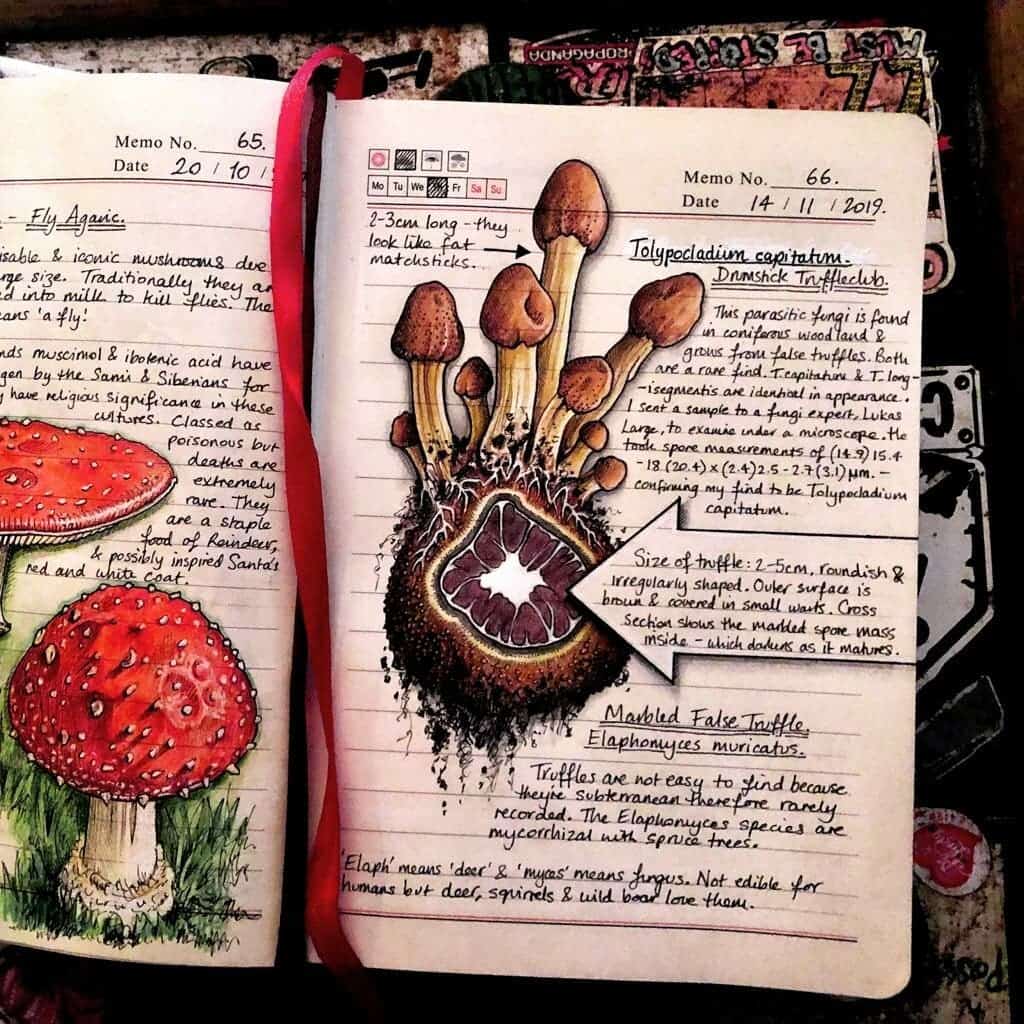 ROPAGANDA
MUST BE STOPPED
77
Memo No. 65.
Date 20 / 10 /
- Fly Agaric.
isable & iconic mushrooms due
rge size. Traditionally they ar
d into milk to kill flies. The
eans 'a fly!
nds muscimol & ibotenic acid have
gen by the Sami & Siberians for
y have religious significance in these
cultures. Classed as
poisonous but
deaths are
extremely
rare. They
are a staple
food of Reindeer,
& possibly inspired Santa's
red and white coat.
Mo Tu We Fr Sa Su
Memo No. 66.
Date 14 / 11 / 2019.
2-3cm long - they
look like fat
matchsticks.
Tolypocladium capitatum.
Drumstick Truffleclub.
This parasitic fungi is found
in coniferous woodland &
grows from false truffles. Both
are a rare find. T.capitatum & T. long-
-isegmentis are identical in appearance.
I sent a sample to a fungi expert, Lukas
Large, to examine under a microscope. He
took spore measurements of (14.9) 15.4
-18 (20.4) x (2.4) 2.5 - 2.7 (3.1) µm. -
confirming my find to be Tolypocladium
capitatum.
Size of truffle: 2-5cm, roundish &
irregularly shaped. Outer surface is
brown & covered in small warts. Cross
section shows the marbled spore mass
inside - which darkens as it matures.
Marbled False Truffle
Elaphomyces muricatus.
Truffles are not easy to find because
they're subterranean therefore rarely
recorded. The Elaphomyces species are
mycorrhizal with spruce trees.
'Elaph' means 'deer' & 'myces' means fungus. Not edible for
humans but deer, squirrels & wild boar love them.